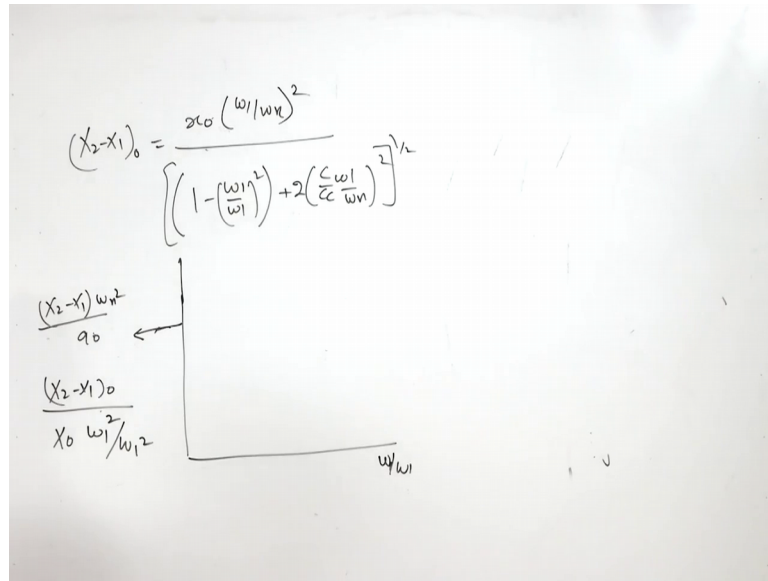 (X₂-X₁)₀ = x₀ (ω₁/ωn)² / [(1-(ω₁n/ω₁)²) + 2(C/Cc ω₁/ωn)²]^1/2
(X₂-X₁) ωn² / a₀
(X₂-X₁)₀ / X₀ ω₁²/ω₁²
ω/ω₁